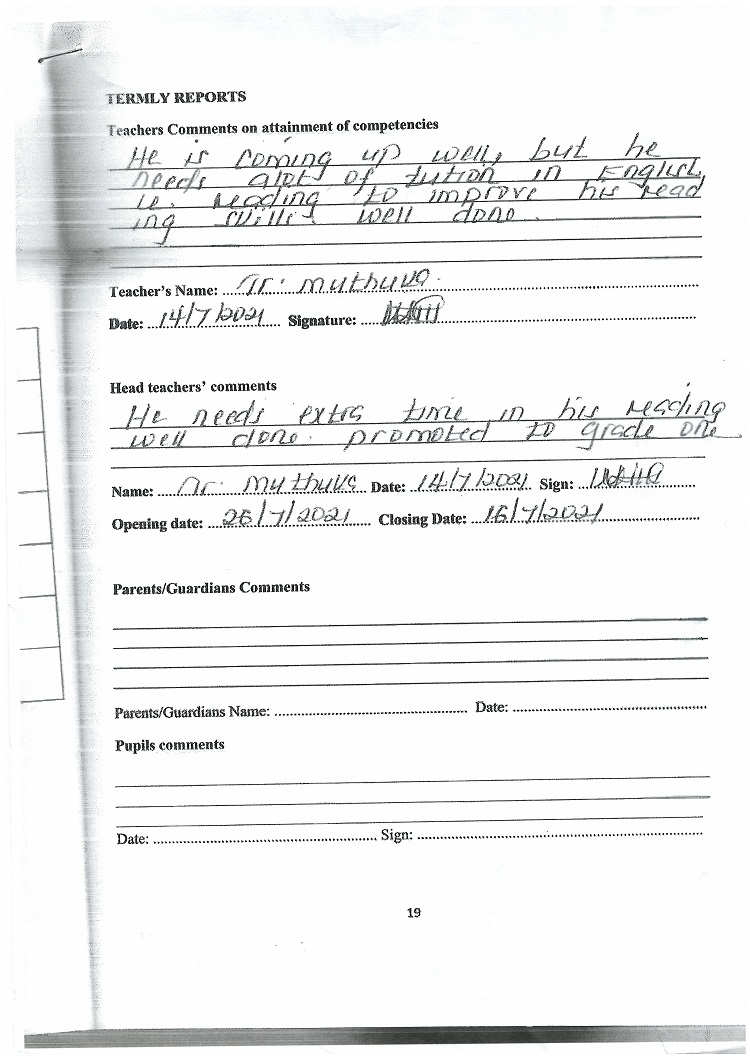 TERMLY REPORTS
Teachers Comments on attainment of competencies
He is coming up well, but he
needs alot of tution in English,
ie. reading to improve his read
ing skills. well done.
Teacher's Name: Tr. muthuva.
Date: 14/7/2021 Signature:
Head teachers' comments
He needs extra time in his reading
well done. promoted to grade one
Name: Tr. muthuva Date: 14/7/2021 Sign:
Opening date: 26/7/2021 Closing Date: 16/7/2021
Parents/Guardians Comments
Parents/Guardians Name: Date:
Pupils comments
Date: Sign:
19